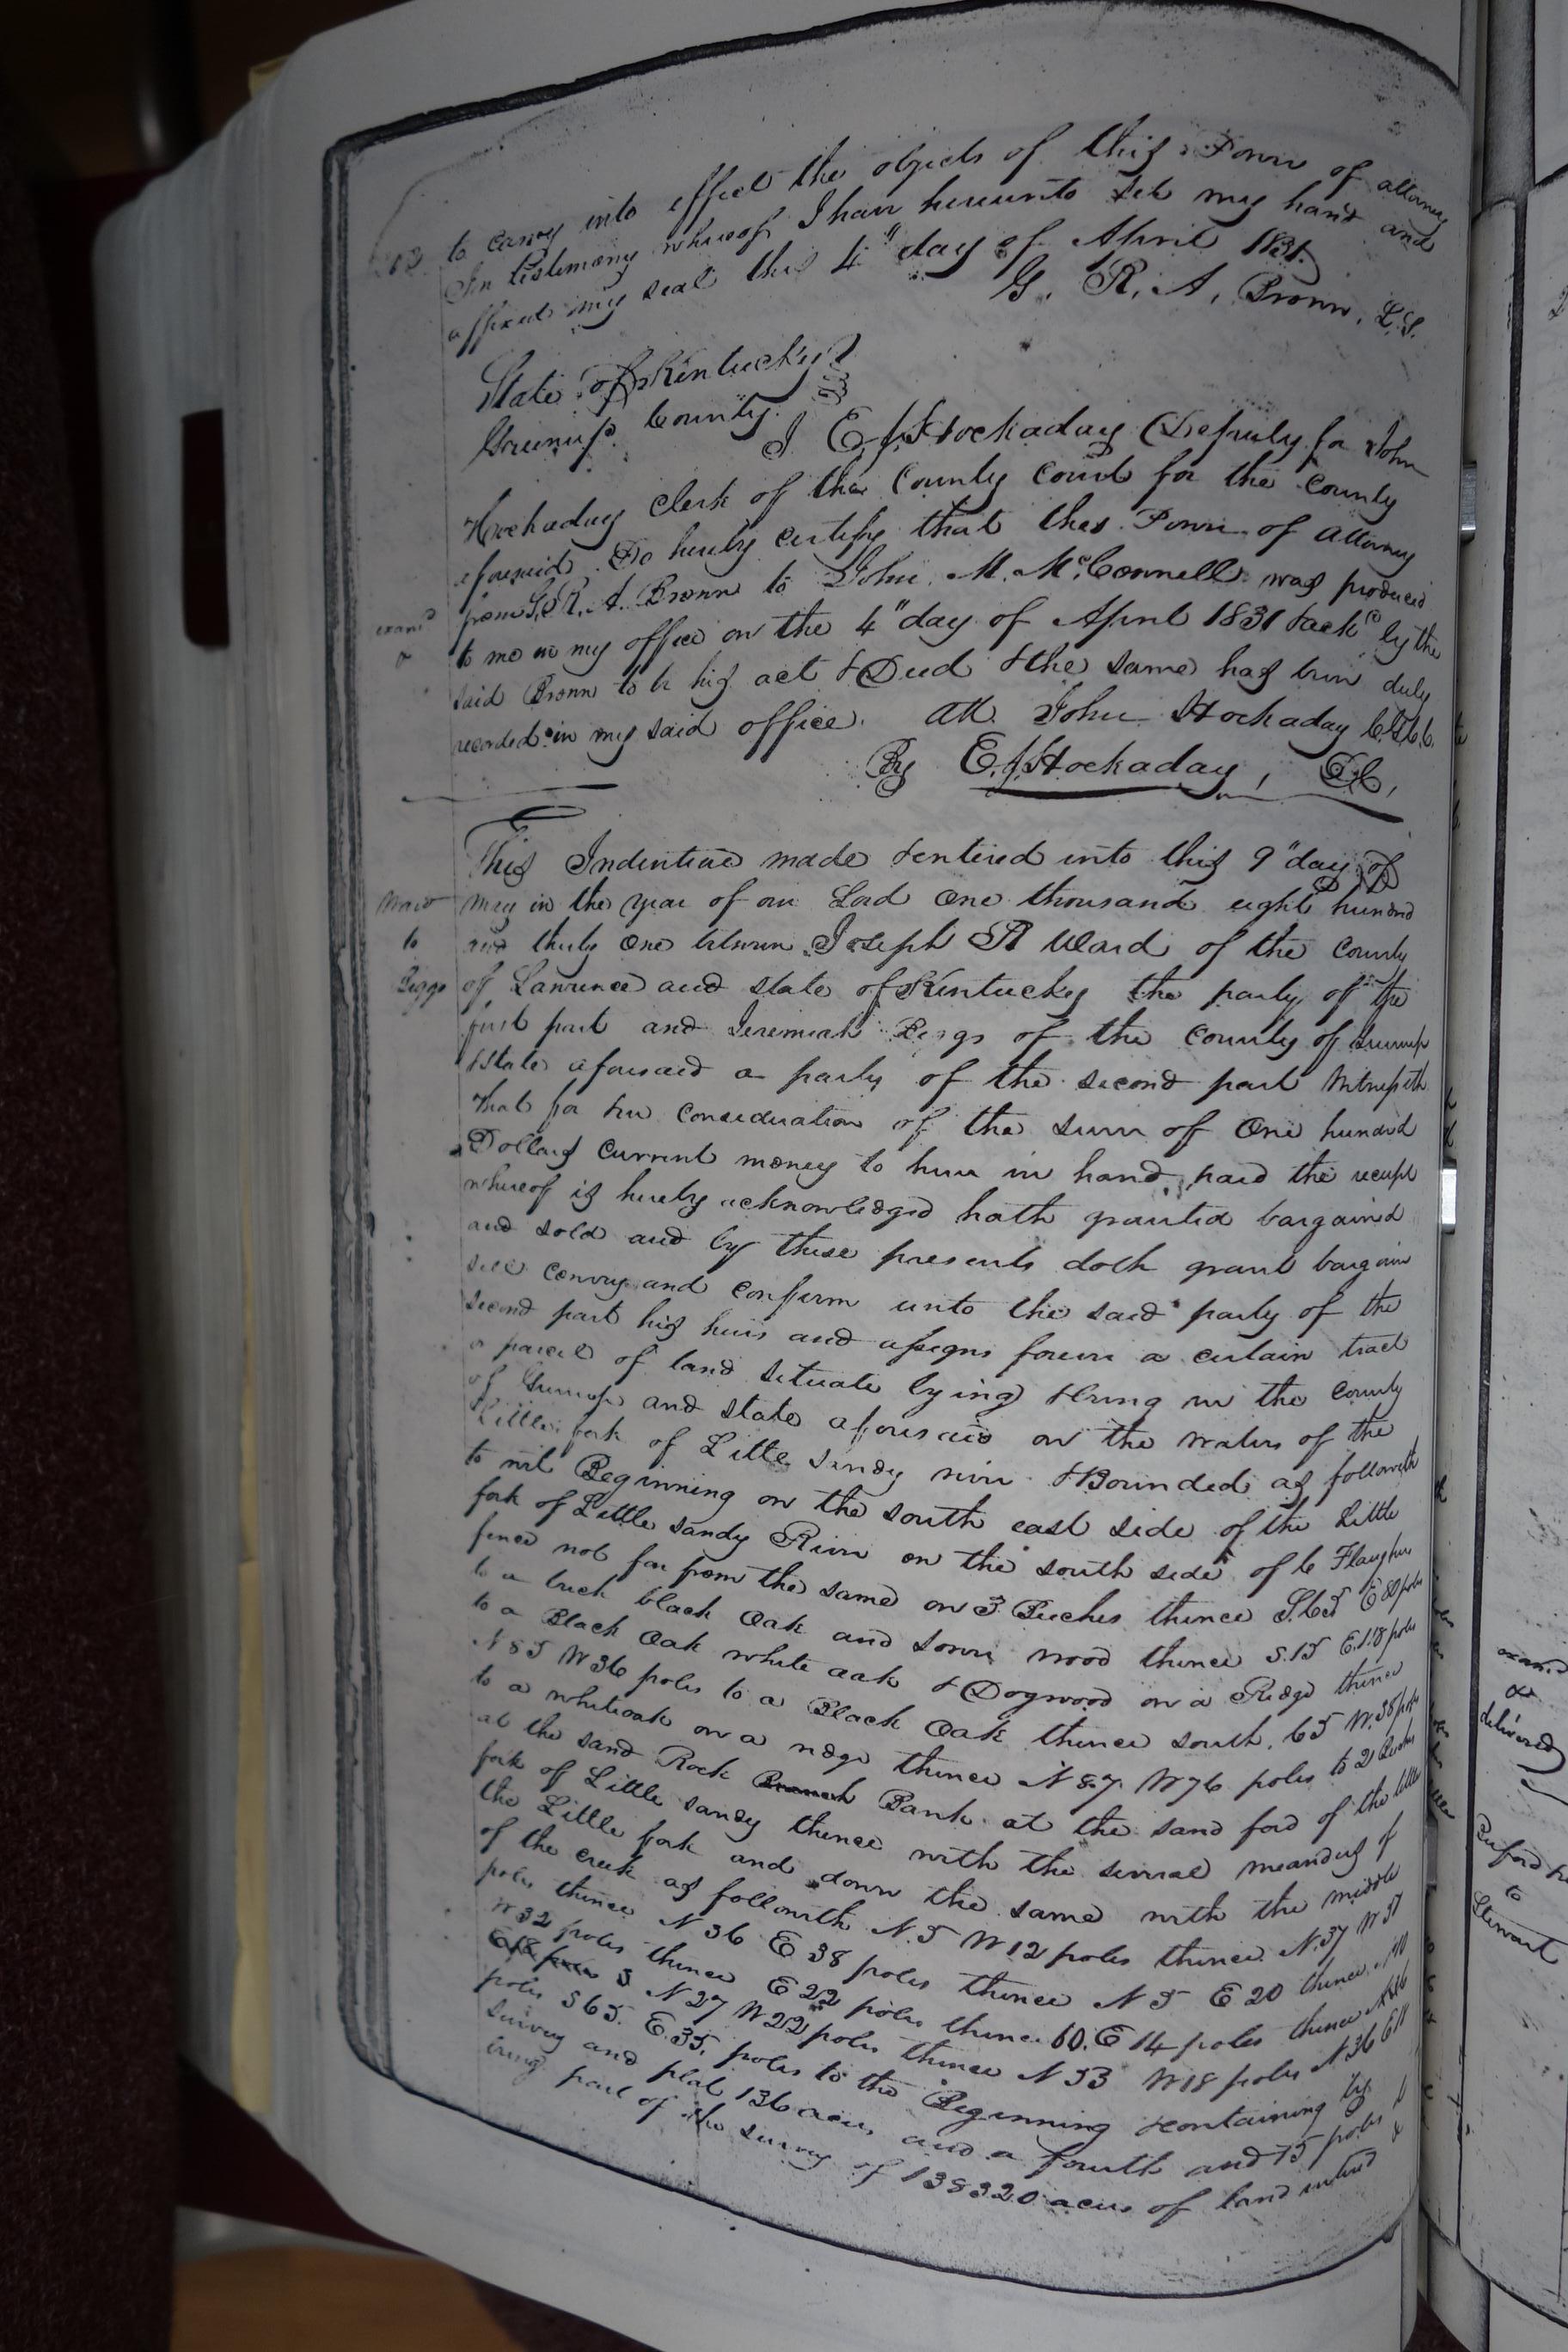 to carry into effect the objects of this Power of attorney
In testimony whereof I have hereunto set my hand and
affixed my seal this 4" day of April 1831.
G. R. A. Brown. L.S.
State of Kentucky
Greenup County.
I E. J. Hockaday Deputy for John
Hockaday Clerk of the County Court for the County
aforesaid Do hereby certify that this Power of Attorney
from G. R. A. Brown to John M. McConnell was produced
examd
to me in my office on the 4" day of April 1831 & ackd by the
said Brown to be his act & Deed & the same has been duly
recorded in my said office. Att. John Hockaday C.G.C.C.
By E. J. Hockaday, D.C,
This Indenture made & entered into this 9" day of
Ward
to
Biggs
may in the year of our Lord One thousand eight hundred
and thirty one between Joseph R Ward of the County
of Lawrence and state of Kentucky the party of the
first part and Jeremiah Biggs of the County of Greenup
& State aforesaid a party of the second part Witnesseth
that for the consideration of the sum of One hundred
Dollars current money to him in hand paid the receipt
whereof is hereby acknowledged hath granted bargained
and sold and by these presents doth grant bargain
sell convey and confirm unto the said party of the
second part his heirs and assigns forever a certain tract
or parcel of land situate lying & being in the County
of Greenup and state aforesaid on the waters of the
Little fork of Little Sandy river & Bounded as followeth
to wit Beginning on the south east side of the Little
fork of Little Sandy River on the south side of C Flaughers
fence not far from the same on 3 Beeches thence S.65 E 80 poles
to a black Oak and sour wood thence S.15 E.118 poles
to a Black Oak white oak & Dogwood on a Ridge thence
N 85 W 36 poles to a Black Oak thence south 65 W. 38 poles
to a whiteoak on a ridge thence N 87 W 76 poles to 2 Beeches
at the sand Rock Branch Bank at the sand ford of the little
fork of Little sandy thence with the several meanders of
the Little fork and down the same with the middle
of the creek as followith N.5 W 12 poles thence N.37 W 31
poles thence N 36 E 38 poles thence N 5 E 20 thence
W 32 poles thence E 22 poles thence 60. E 14 poles thence
N 27 W 22 poles thence N 53 W 18 poles N 36 E 11
poles S 65. E. 35. poles to the Beginning & containing by
survey and plat 136 acres and a fourth and 15 poles
being part of the survey of 138320 acres of land entered
examd
&
delivered
Buford
to
Stewart